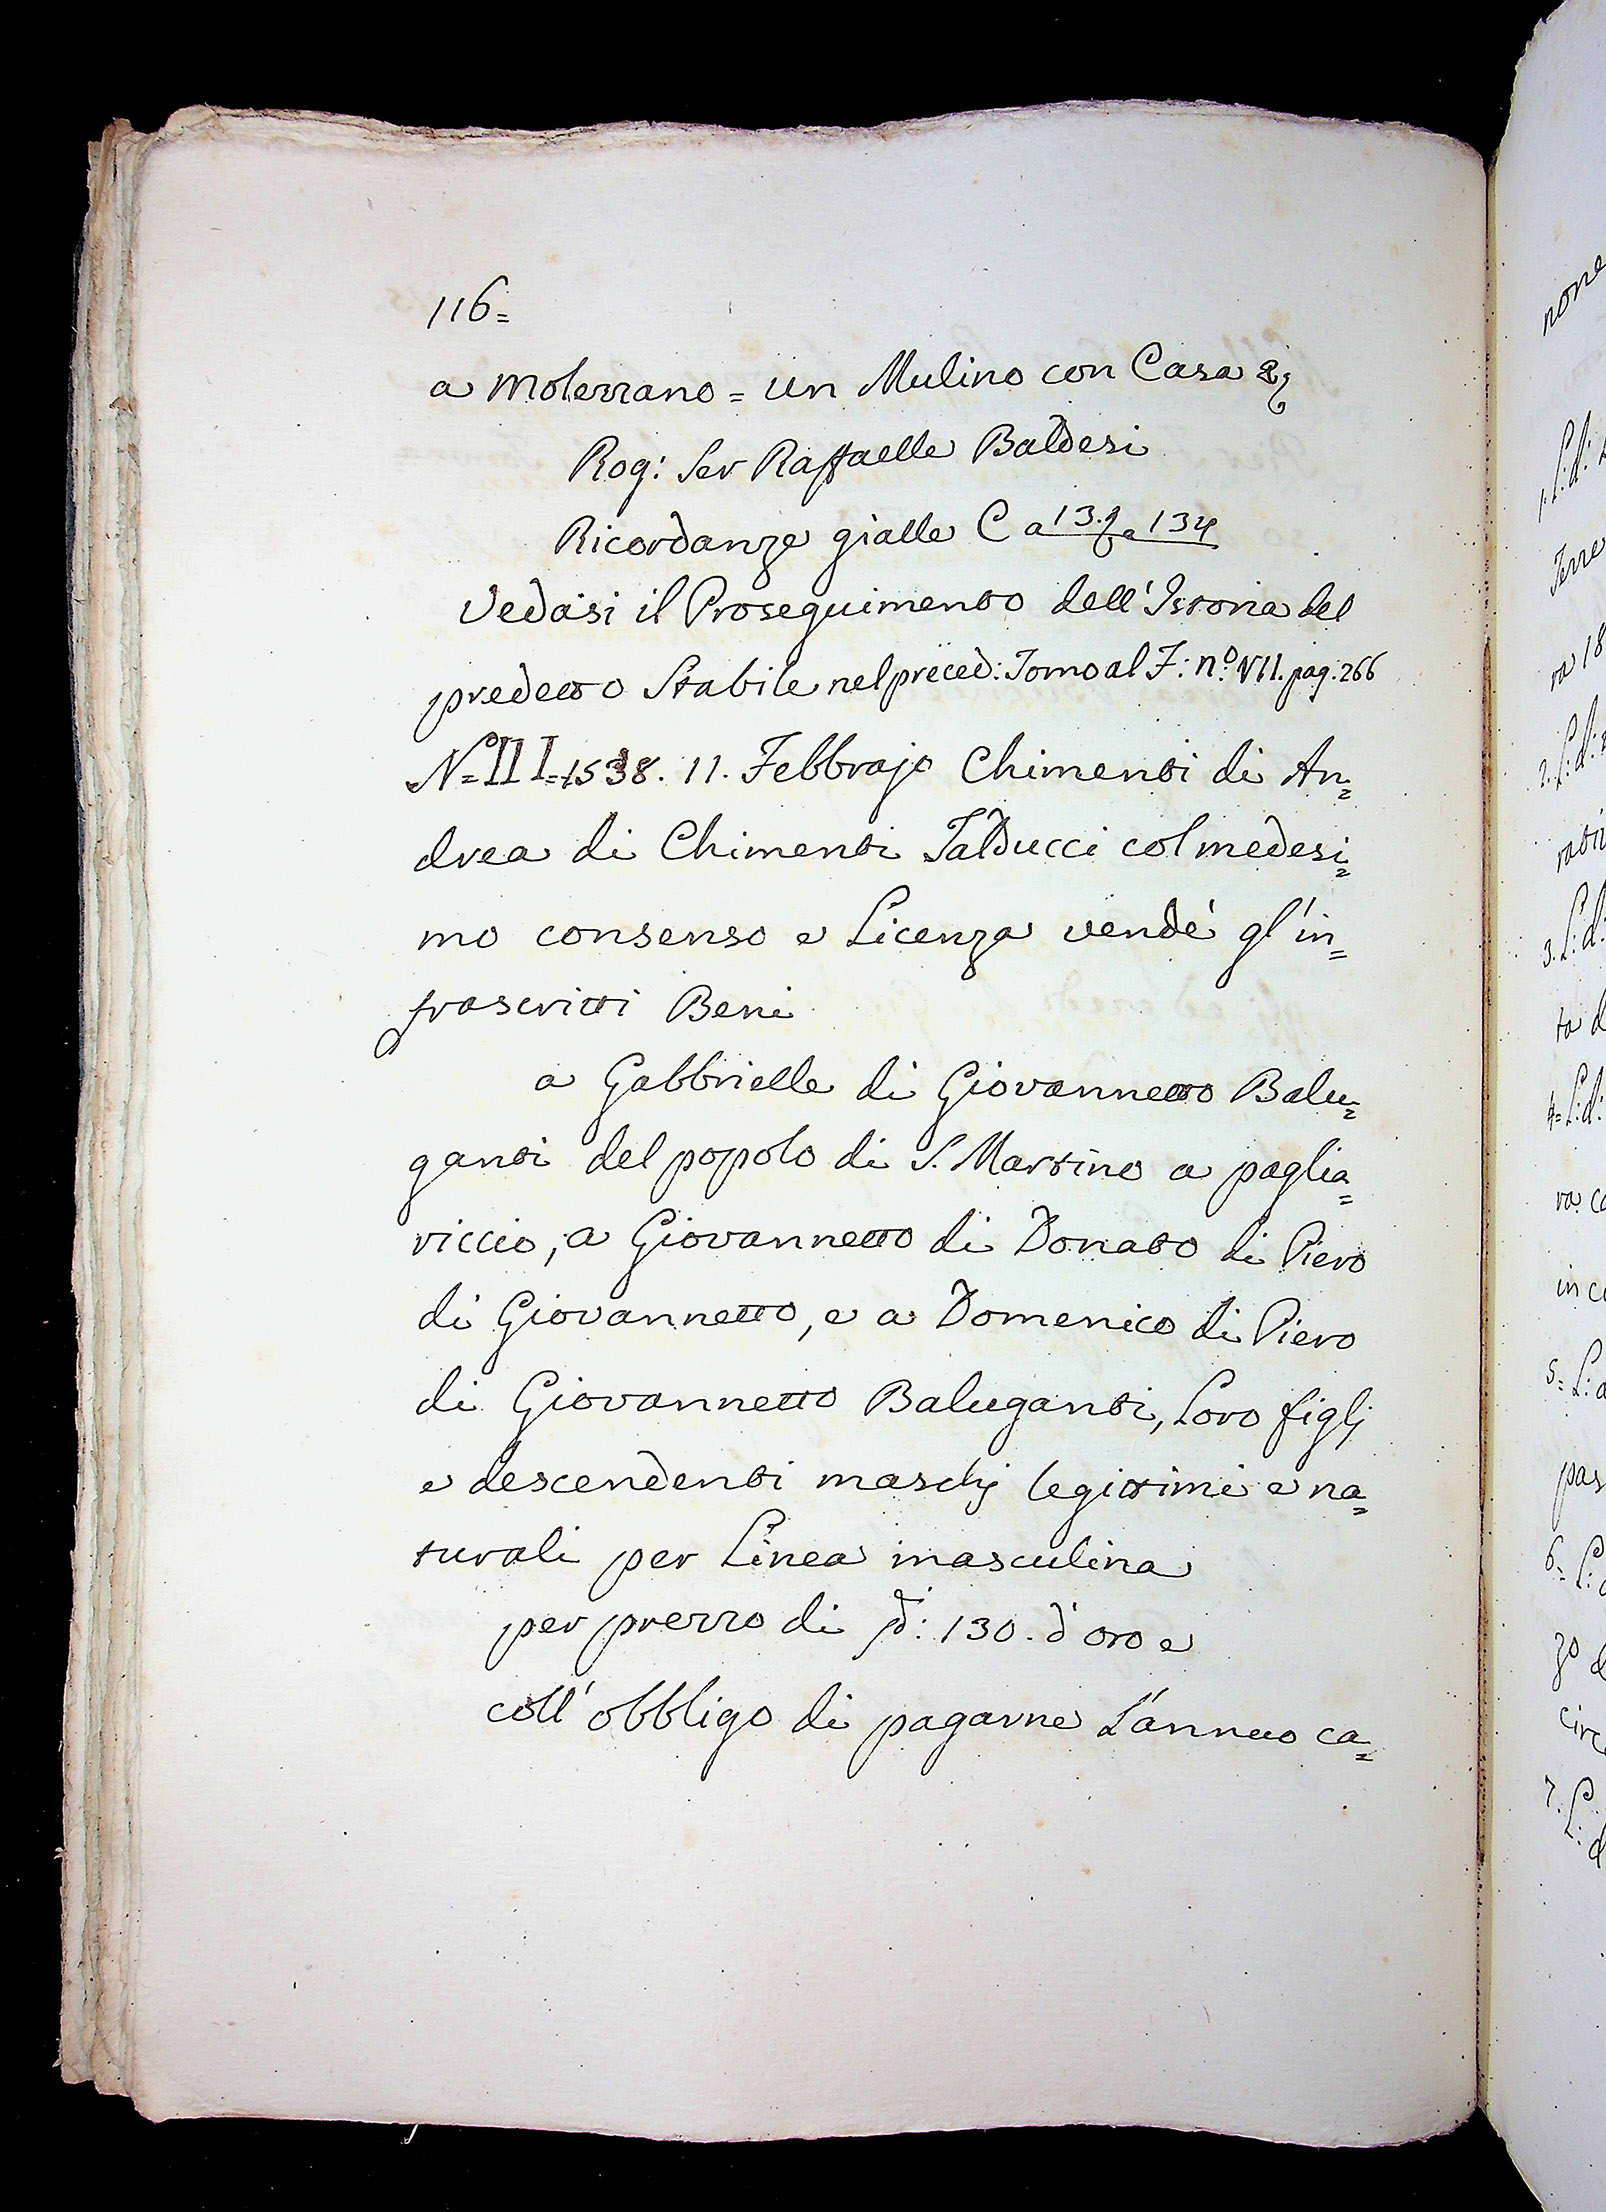 116=
a Molezzano = un Mulino con Casa &
Rog: Ser Raffaelle Baldesi
Ricordanze gialle C a 134
Vedasi il Proseguimento dell'Istoria del
predetto Stabile nel preced: Tomo al F: n.º VII. pag. 266
N=III=1538. 11. Febbrajo Chimenti di An=
drea di Chimenti Talducci col medesi=
mo consenso e Licenza vendè gl'in=
frascritti Beni
a Gabbrielle di Giovannetto Balu=
ganti del popolo di S. Martino a paglia=
riccio, a Giovannetto di Donato di Piero
di Giovannetto, e a Domenico di Piero
di Giovannetto Baluganti, Loro figlj
e descendenti maschj legittimi e na=
turali per Linea masculina
per prezzo di 130. d'oro e
coll'obbligo di pagarne L'annuo ca=
none
1. L: d:
Terre
ra 18
2. L: d:
3. L: d:
ta d
4= L: d:
va co
in co
5= L: d
pas
6= L: d
zo d
circ
7. L: d